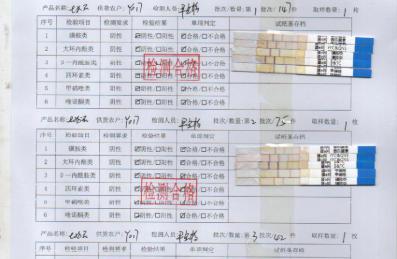 产品名称: 供货农户: Y017 检测人员: 批次/数量: 第1批次: 147件 取样数量: 1枚
序号 检验项目 检测要求 检验结果 单项判定 试纸条存档
1 磺胺类 阴性 ☑阴性□阳性 ☑合格□不合格
2 大环内酯类 阴性 ☑阴性□阳性 ☑合格□不合格
3 β-内酰胺类 阴性 ☑阴性□阳性 ☑合格□不合格
4 四环素类 阴性 ☑阴性□阳性 ☑合格□不合格
5 甲硝唑类 阴性 ☑阴性□阳性 ☑合格□不合格
6 喹诺酮类 阴性 ☑阴性□阳性 ☑合格□不合格
检测合格
产品名称: 供货农户: Y017 检测人员: 批次/数量: 第2批次: 75件 取样数量: 1枚
序号 检验项目 检测要求 检验结果 单项判定 试纸条存档
1 磺胺类 阴性 ☑阴性□阳性 ☑合格□不合格
2 大环内酯类 阴性 ☑阴性□阳性 ☑合格□不合格
3 β-内酰胺类 阴性 ☑阴性□阳性 ☑合格□不合格
4 四环素类 阴性 ☑阴性□阳性 ☑合格□不合格
5 甲硝唑类 阴性 ☑阴性□阳性 ☑合格□不合格
6 喹诺酮类 阴性 ☑阴性□阳性 ☑合格□不合格
检测合格
产品名称: 供货农户: Y017 检测人员: 批次/数量: 第3批次: 42件 取样数量: 1枚
序号 检验项目 检测要求 检验结果 单项判定 试纸条存档